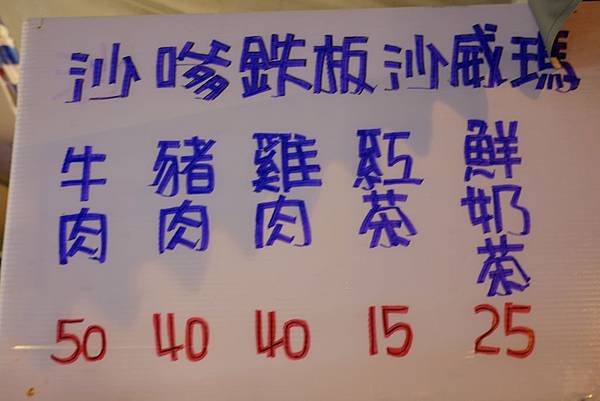 沙嗲鉄板沙威瑪
牛肉 豬肉 雞肉 紅茶 鮮奶茶
50 40 40 15 25